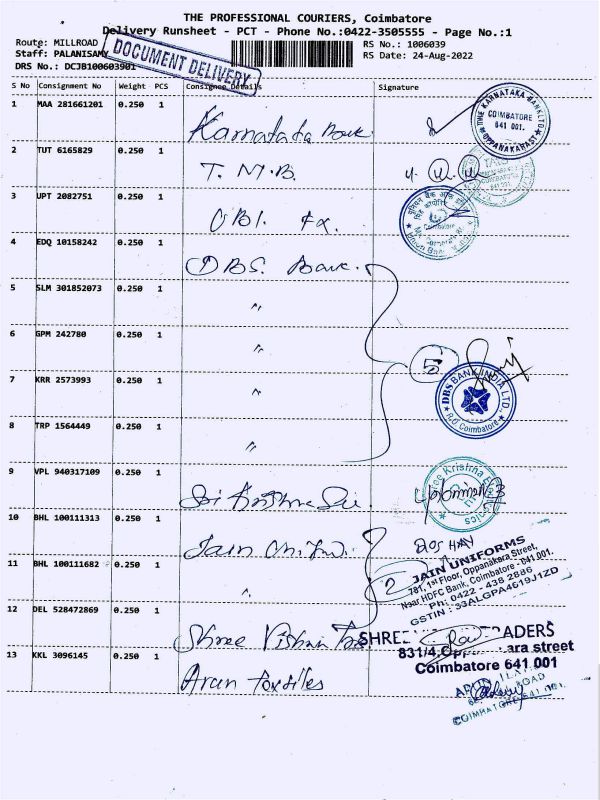 THE PROFESSIONAL COURIERS, Coimbatore
Delivery Runsheet - PCT - Phone No.:0422-3505555 - Page No.:1
Route: MILLROAD
RS No.: 1006039
Staff: PALANISAMY
RS Date: 24-Aug-2022
DRS No.: DCJB100603901
DOCUMENT DELIVERY
S No Consignment No Weight PCS Consignee Details Signature
1 MAA 281661201 0.250 1 Karnataka Bank
COIMBATORE 641 001.
2 TUT 6165829 0.250 1 T.M.B.
3 UPT 2082751 0.250 1 UBI. Fx.
4 EDQ 10158242 0.250 1 DBS. Bank.
5 SLM 301852073 0.250 1 "
6 GPM 242780 0.250 1 "
5
7 KRR 2573993 0.250 1 "
DBS BANK INDIA LTD., R.O Coimbatore
8 TRP 1564449 0.250 1 "
9 VPL 940317109 0.250 1 Sri Krishna
10 BHL 100111313 0.250 1 Jain Uni
11 BHL 100111682 0.250 1 "
2
JAIN UNIFORMS
781, 1st Floor, Oppanakara Street,
Near HDFC Bank, Coimbatore - 641 001.
Ph: 0422 - 438 2886
GSTIN : 33ALGPA4619J1ZD
12 DEL 528472869 0.250 1 Shree Vishnu
SHREE ADERS
831/4, ara street
Coimbatore 641 001
13 KKL 3096145 0.250 1 Arun Textiles
COIMBATORE 641 001.